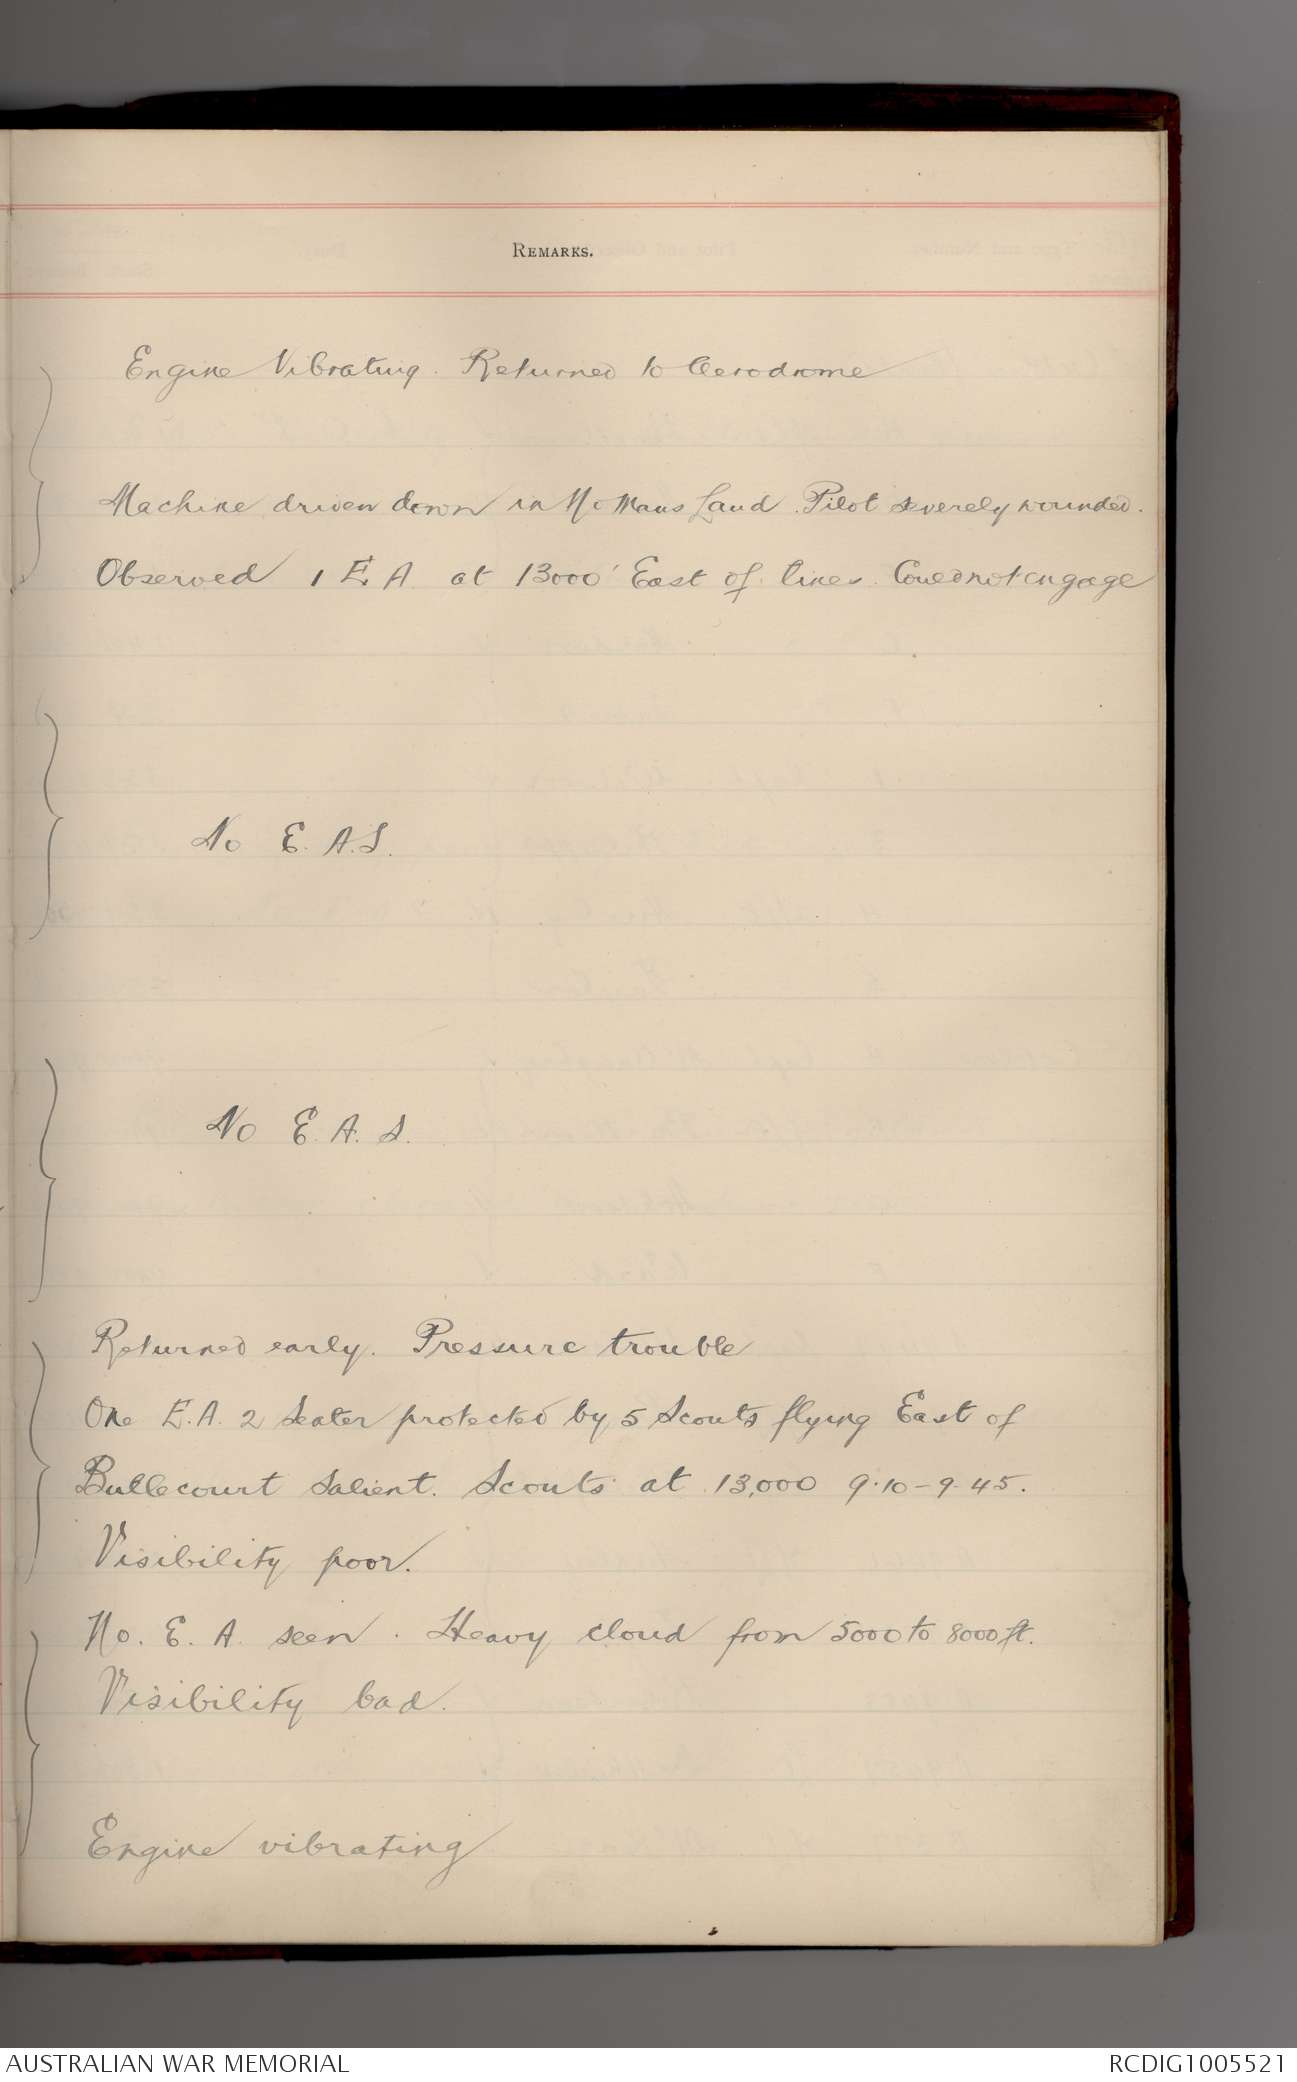 REMARKS.
Engine Vibrating. Returned to Aerodrome
Machine driven down in No Mans Land. Pilot severely wounded.
Observed 1 E A at 13000' East of lines. Could not engage
No E. A. S.
No E. A. S.
Returned early. Pressure trouble
One E. A. 2 Seater protected by 5 Scouts flying East of
Bullecourt Salient. Scouts at 13,000 9.10 - 9.45.
Visibility poor.
No. E. A. seen. Heavy cloud from 5000 to 8000 ft.
Visibility bad.
Engine vibrating
AUSTRALIAN WAR MEMORIAL
RCDIG1005521